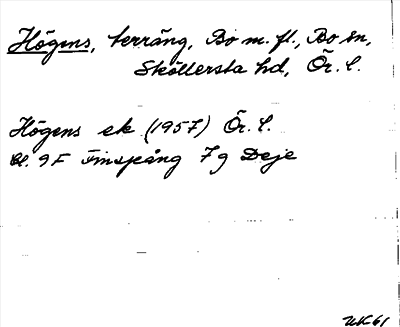 Högens, terräng, Bo m. fl., Bo sn,
Sköllersta hd, Ör. l.
Högens ek (1957) Ör. l.
Bl. 9F Finspång 7g Deje
UK61